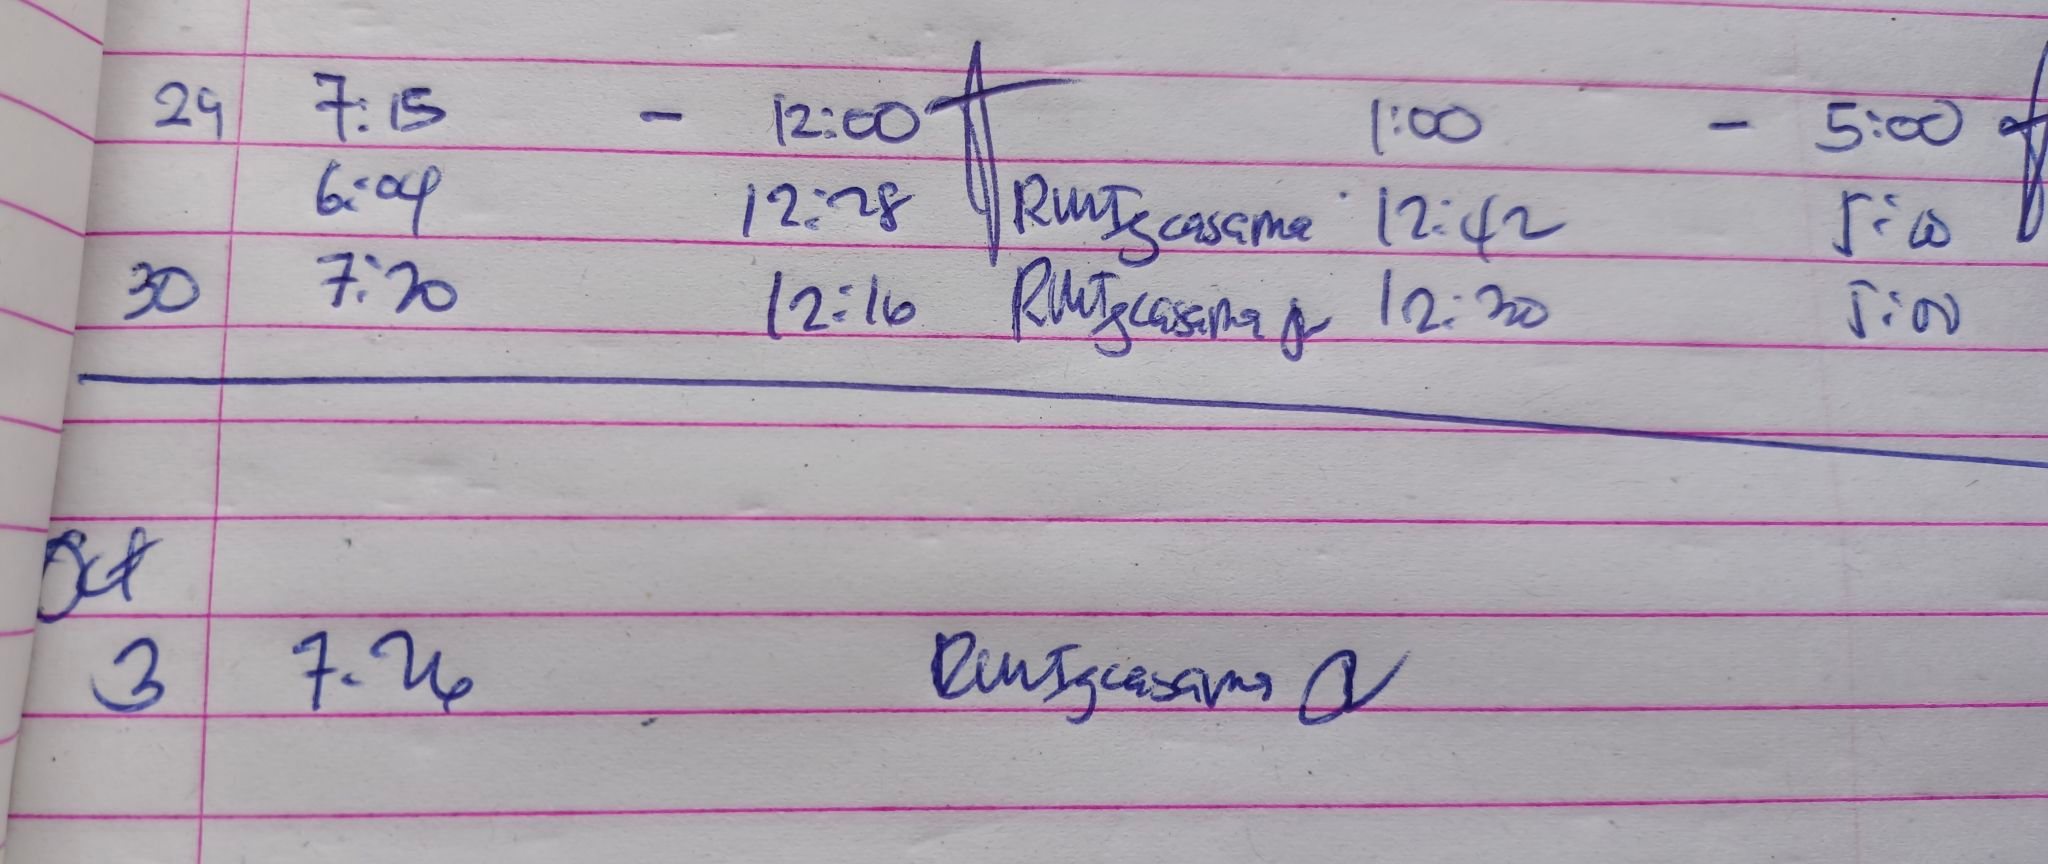 29 7:15 - 12:00 1:00 - 5:00
6:04 12:28 12:42 5:00
30 7:20 12:16 12:30 5:00
Oct
3 7.26